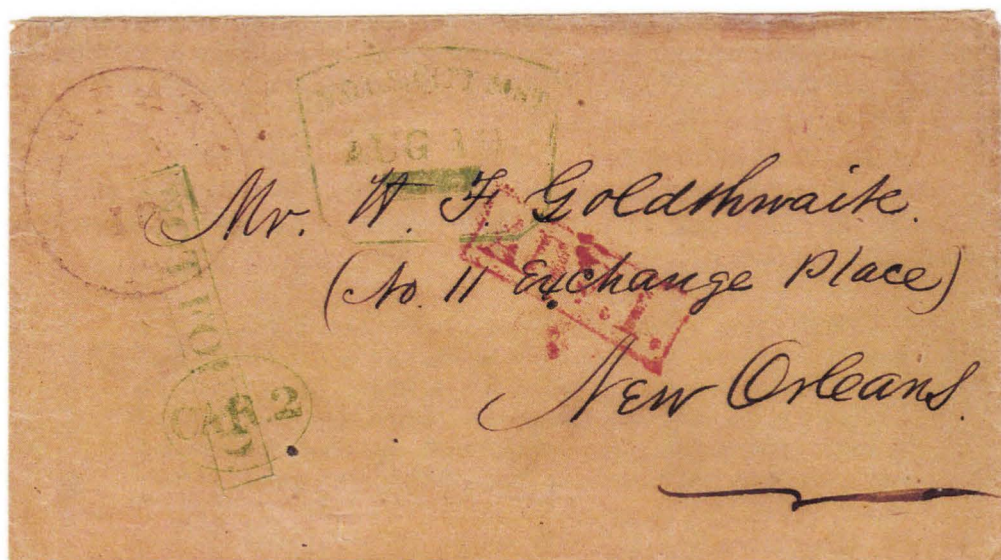 AUG
Mr. H. F. Goldthwaite.
(No. 11 Exchange Place)
New Orleans.
CAR. 2
ADV. 1.